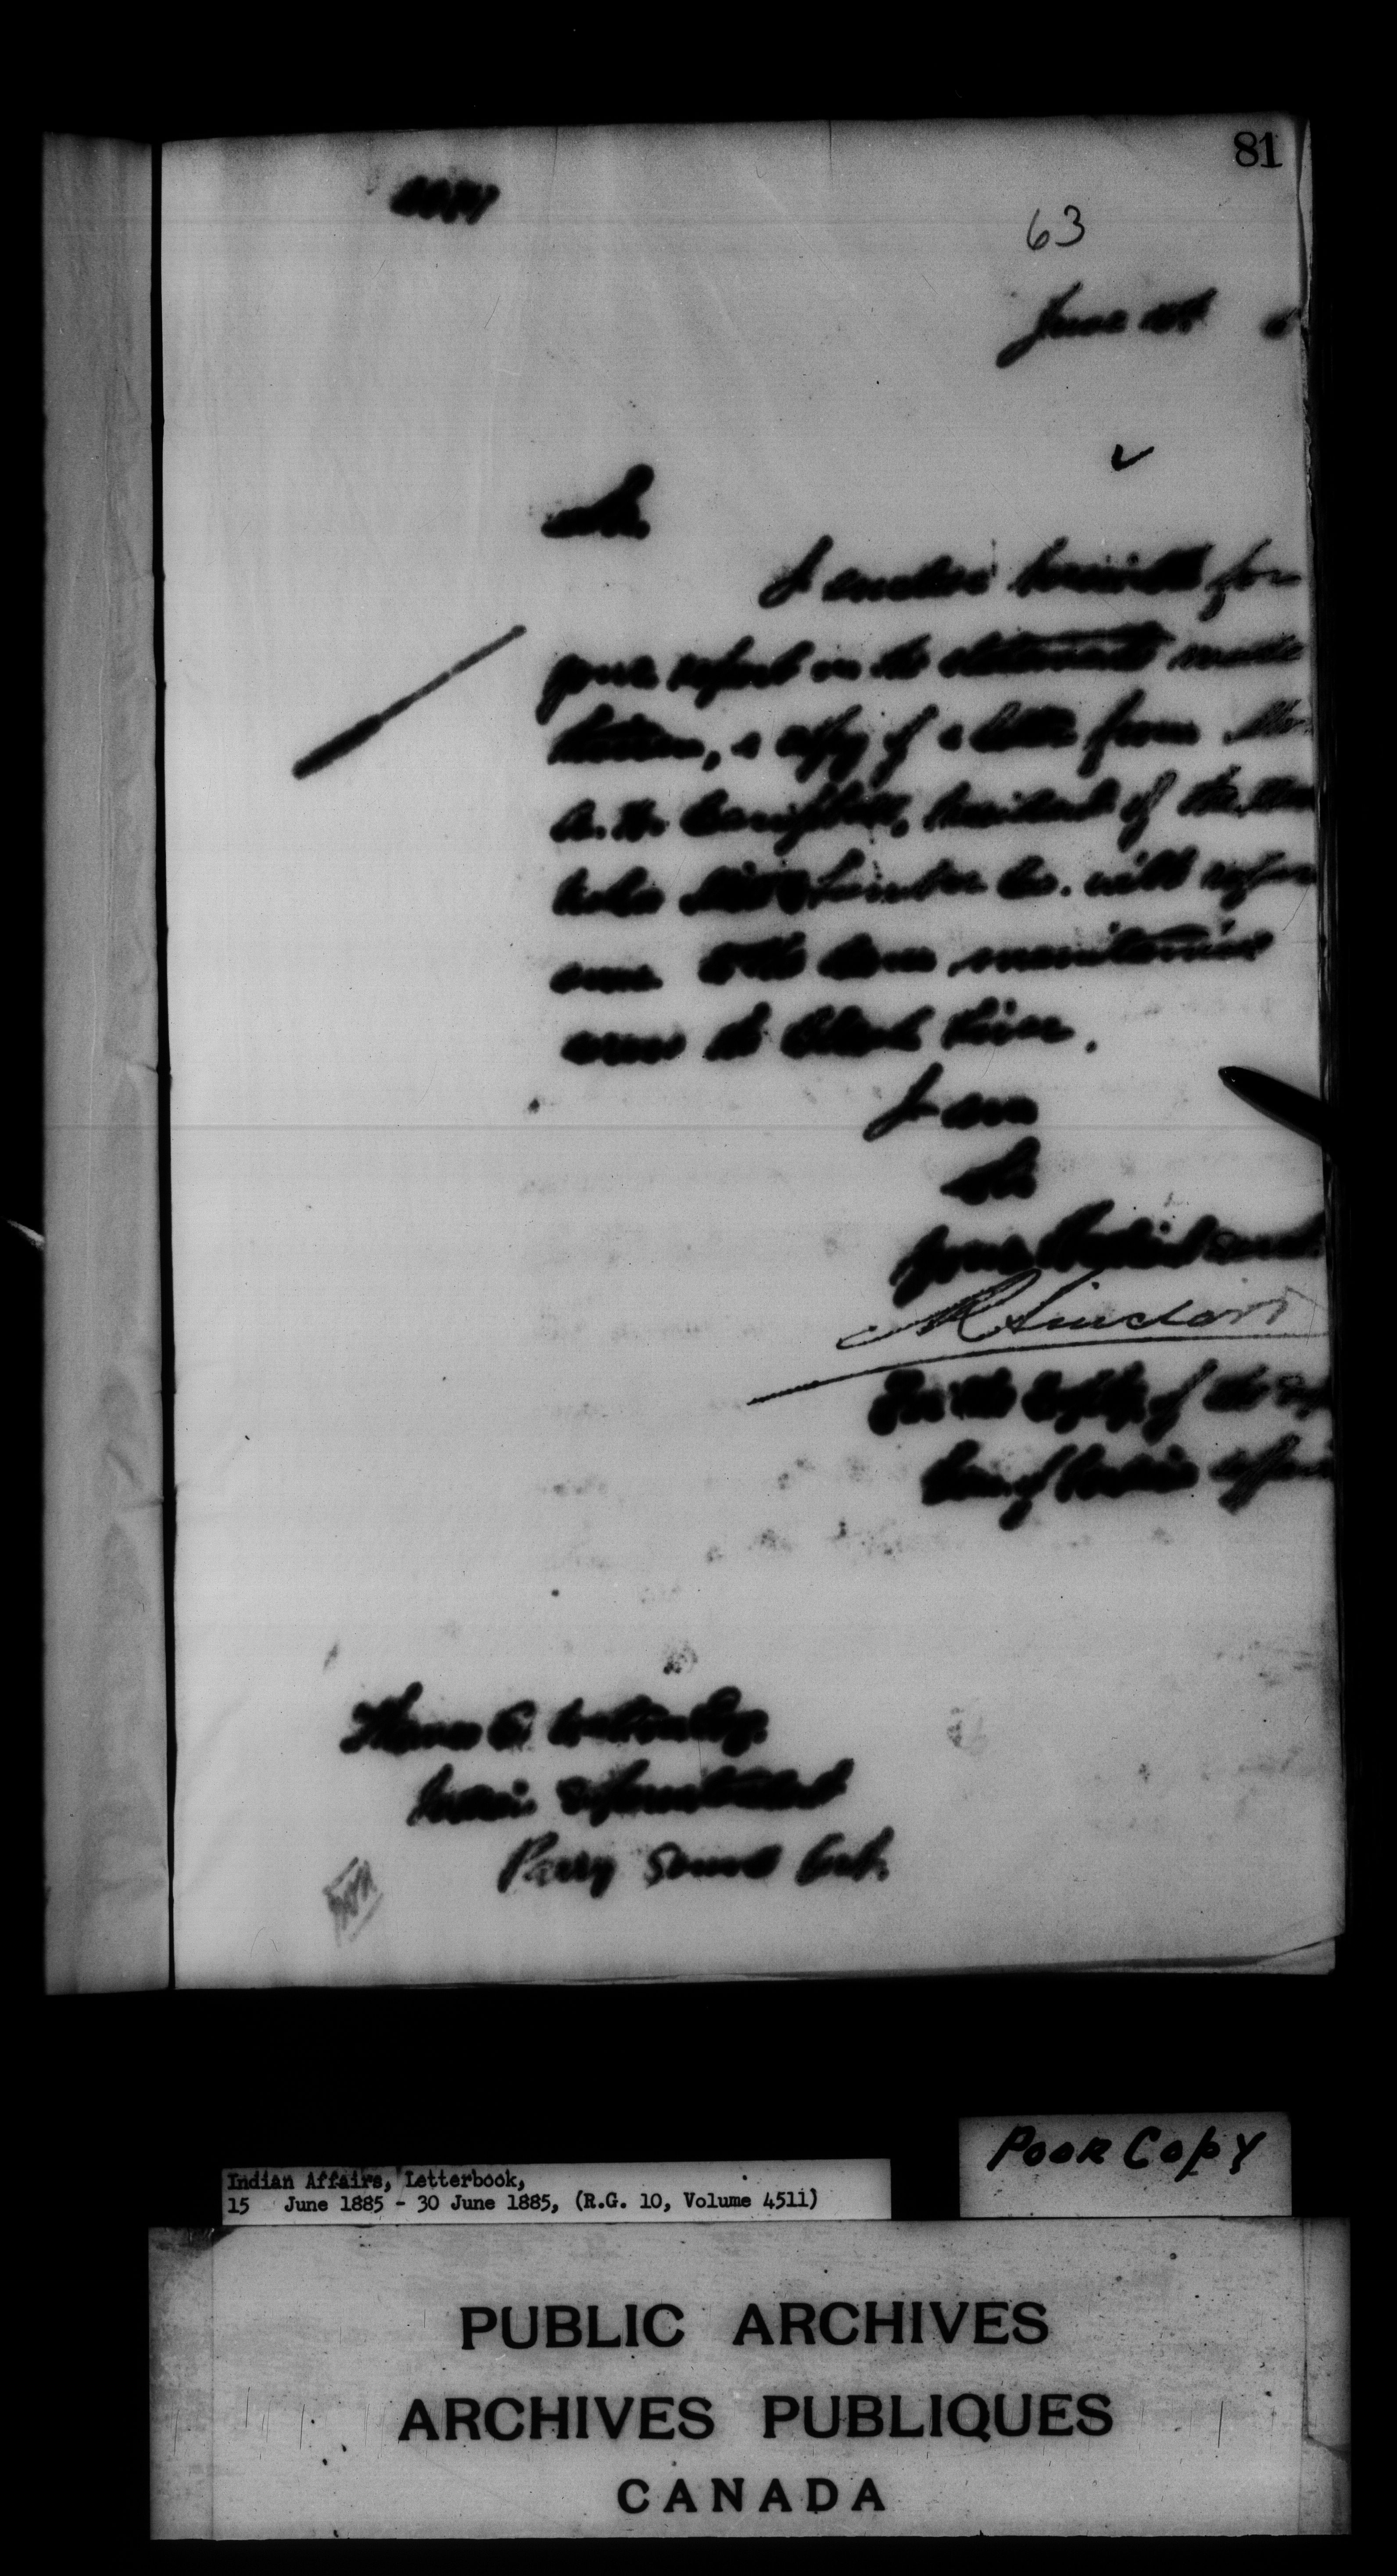 81
63
June
Sir
I enclose herewith for
your report on the statements made
therein, a copy of a letter from Mr
A. H. Campbell, President of the Mus
koka Lumber Co. with refer
ence to the
across the Black River.
I am
Sir
your obedient servt.
R Sinclair
For the Depty. of the Sup
Gen. of Indian Affairs
Thomas S. Walton Esq.
Indian Superintendent
Parry Sound Ont.
Poor Copy
Indian Affairs, Letterbook,
15 June 1885 - 30 June 1885, (R.G. 10, Volume 4511)
PUBLIC ARCHIVES
ARCHIVES PUBLIQUES
CANADA